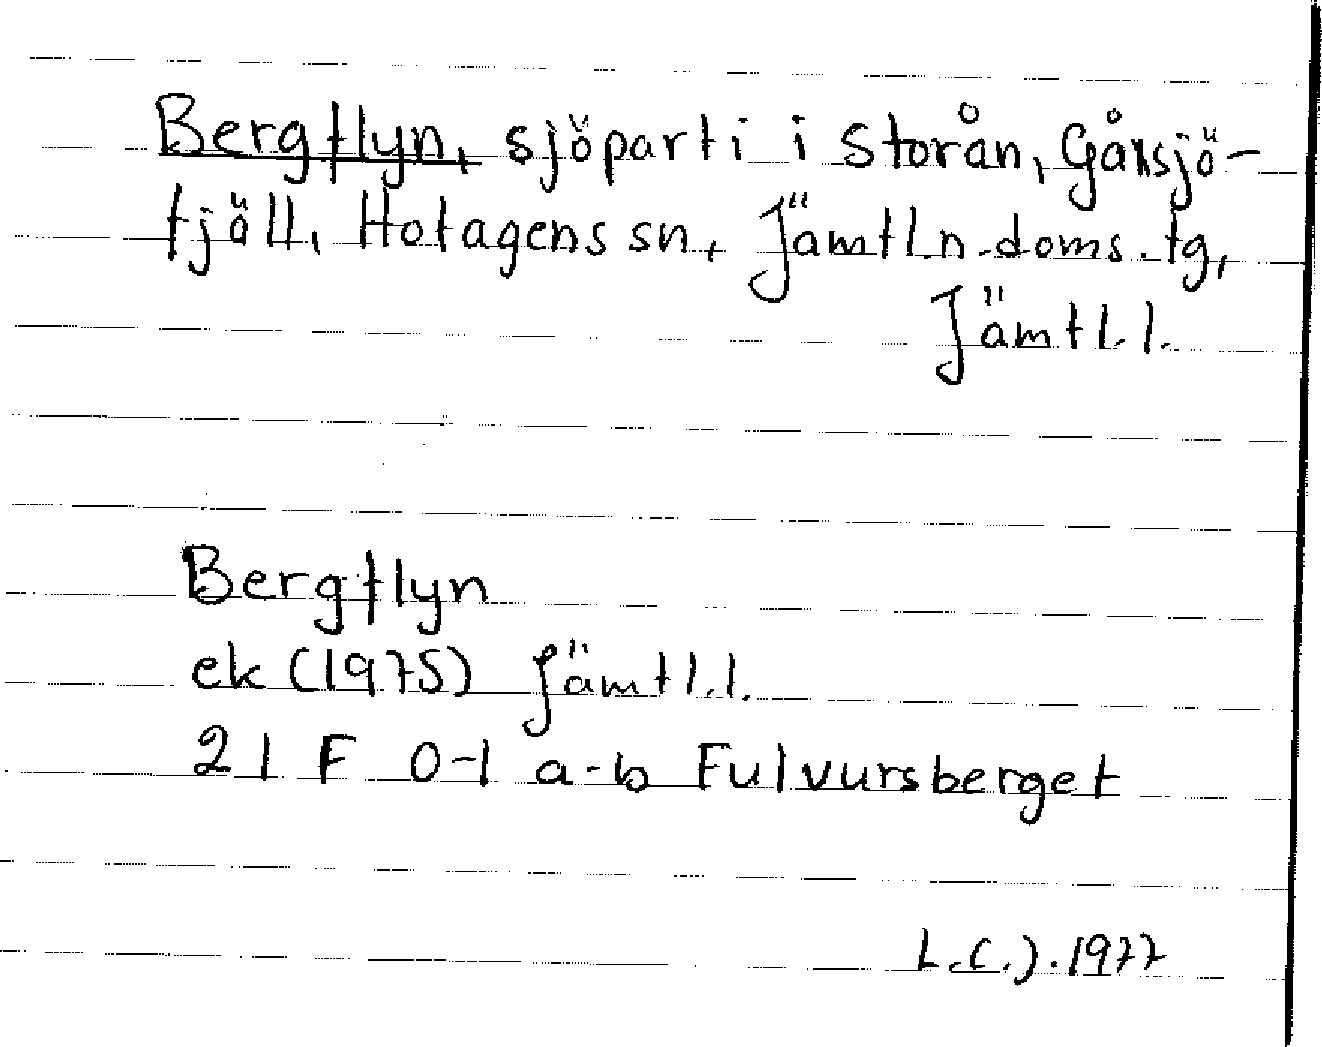 Bergflyn, sjöparti i Storån, Gånsjö-
fjäll, Hotagens sn, Jämtl.n.doms.tg,
Jämtl.l.
Bergflyn
ek (1975) Jämtl.l.
21 F 0-1 a-b Fulvursberget
L.C.J.1977